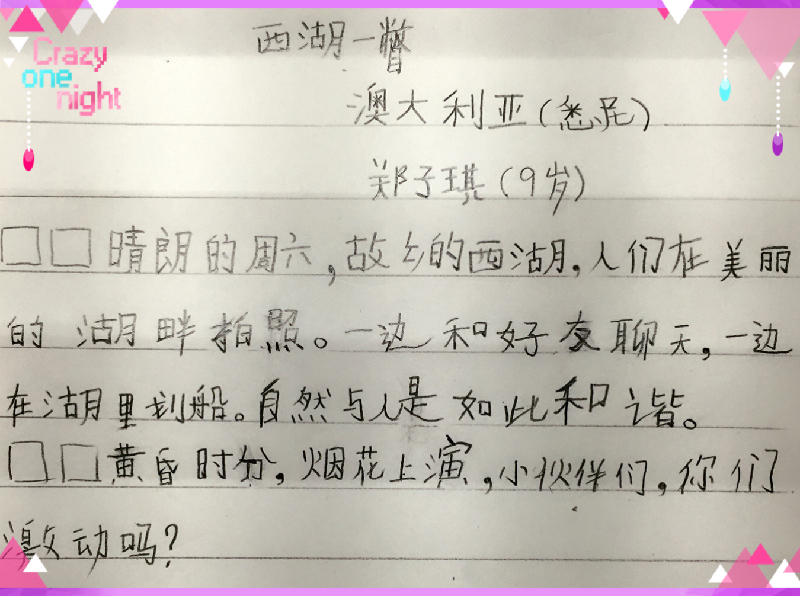 Crazy
one
night
西湖一瞥
澳大利亚(悉尼)
郑子琪(9岁)
□□晴朗的周六,故乡的西湖,人们在美丽
的湖畔拍照。一边和好友聊天,一边
在湖里划船。自然与人是如此和谐。
□□黄昏时分,烟花上演,小伙伴们,你们
激动吗?